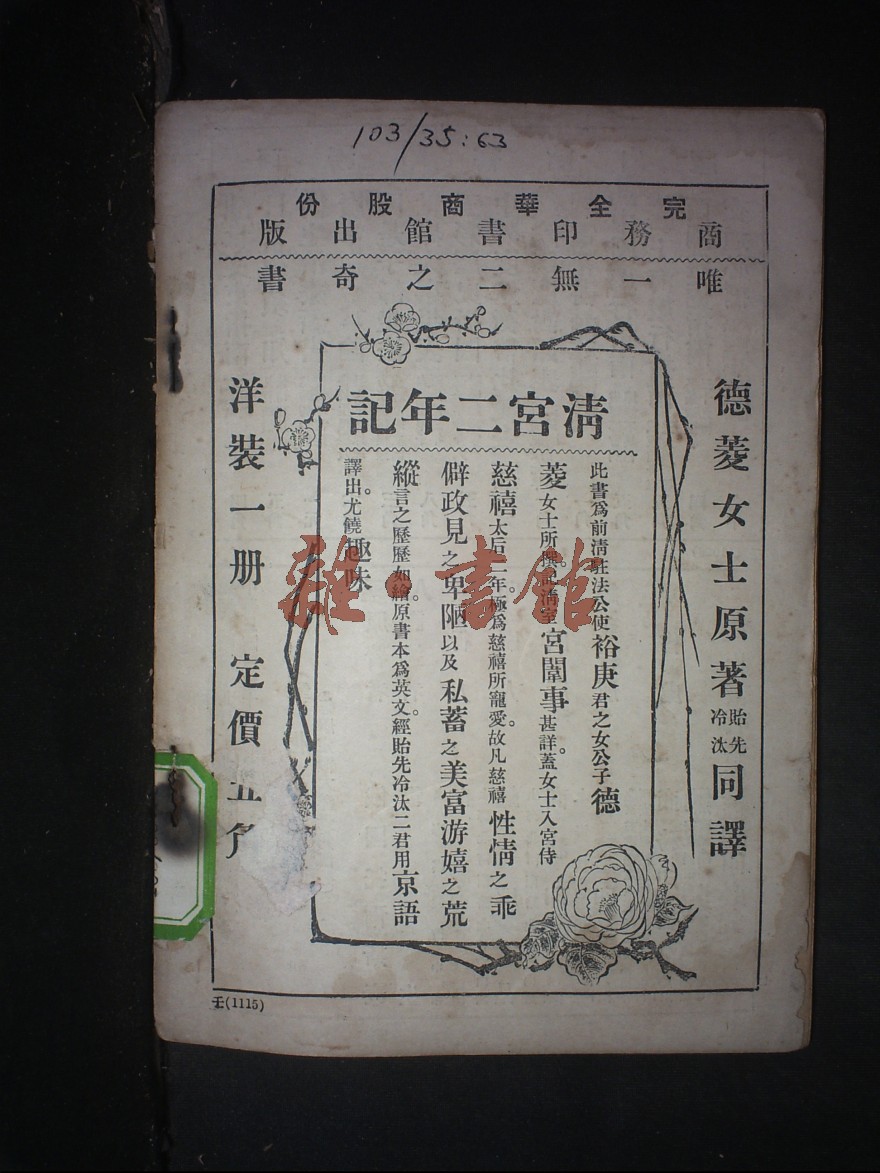 103/35:63
完全華商股份
商務印書館出版
唯一無二之奇書
德菱女士原著 貽先 冷汰 同譯
清宮二年記
此書爲前清駐法公使裕庚君之女公子德
菱女士所撰。記清室宮闈事甚詳。蓋女士入宮侍
慈禧太后二年。極爲慈禧所寵愛。故凡慈禧性情之乖
僻政見之卑陋以及私蓄之美富游嬉之荒
縱言之歷歷如繪。原書本爲英文。經貽先冷汰二君用京語
譯出。尤饒趣味
洋裝一册 定價五角
壬(1115)
雜·書館